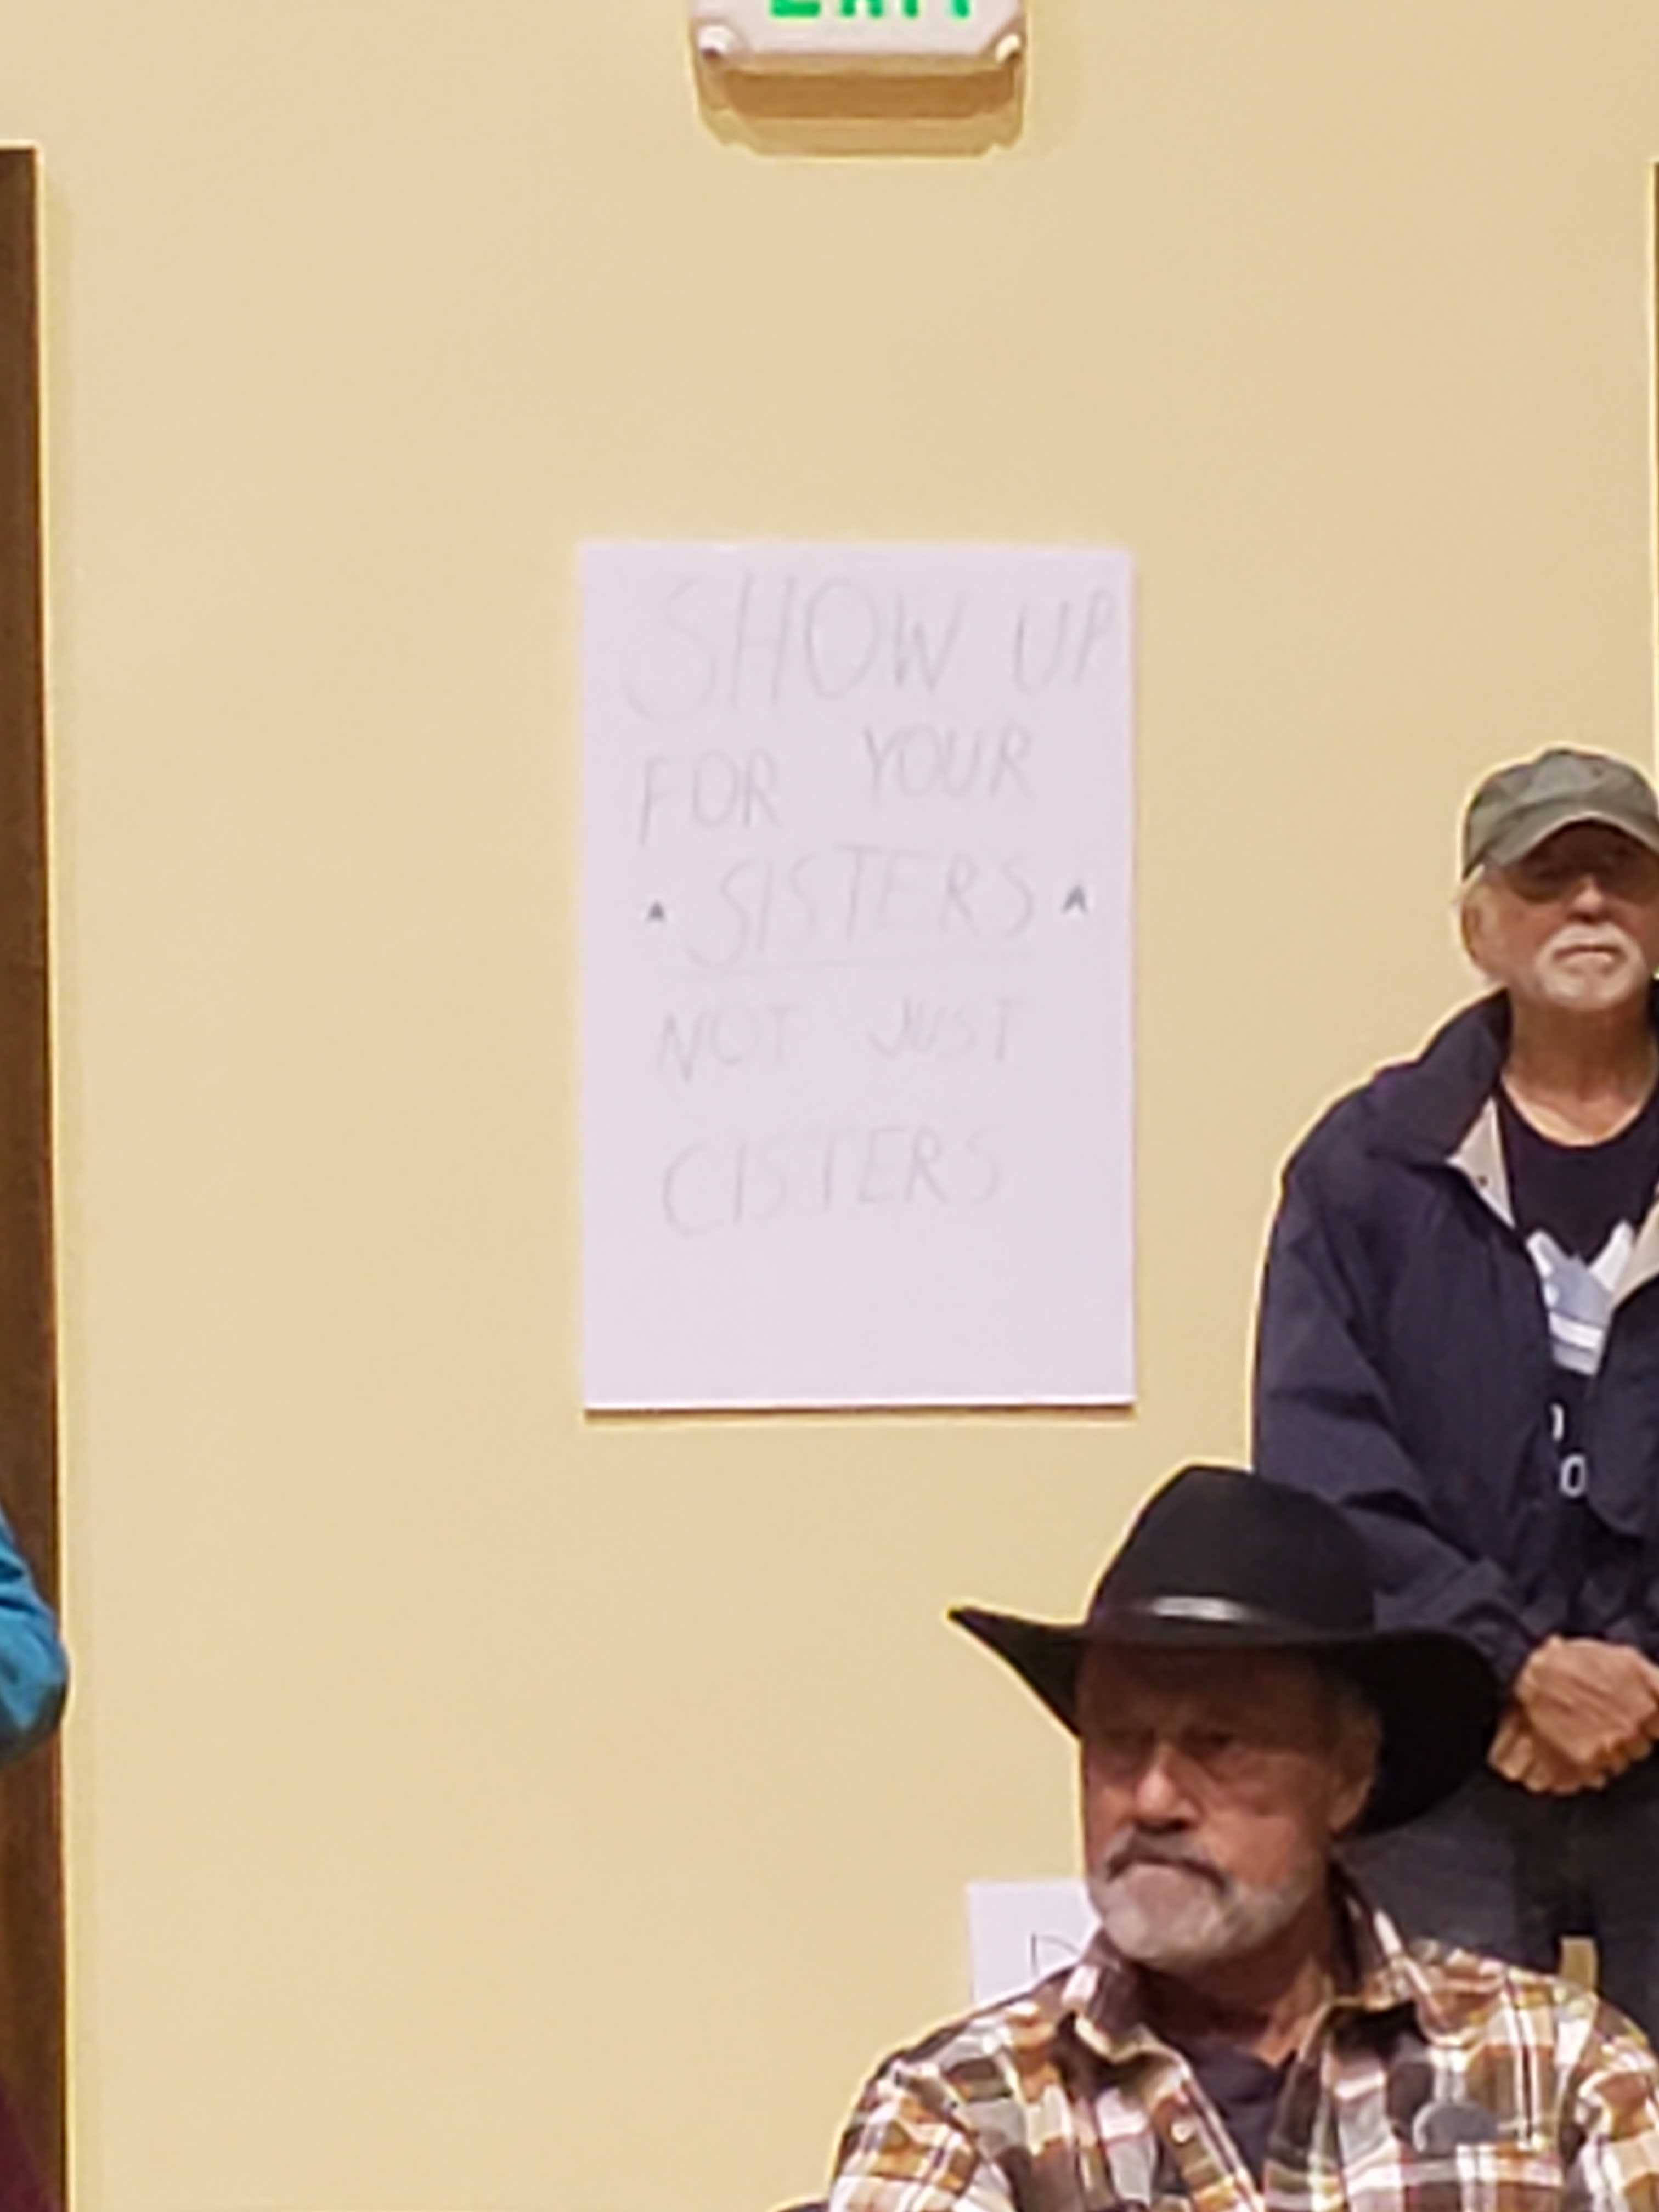 EXIT
SHOW UP
FOR YOUR
SISTERS
NOT JUST
CISTERS